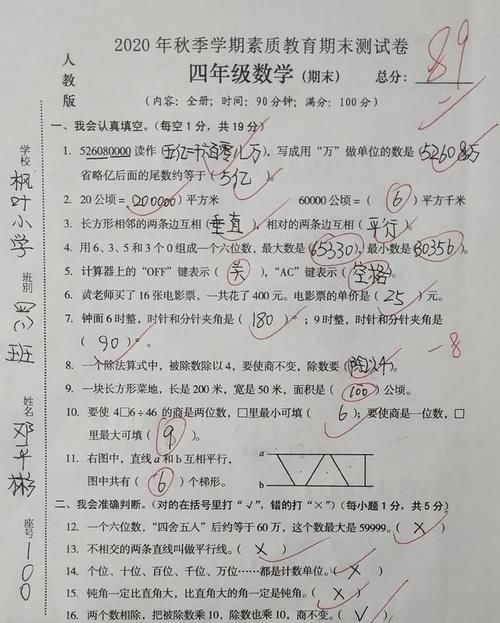 2020 年秋季学期素质教育期末测试卷
人教版
四年级数学（期末） 总分： 89
（内容：全册；时间：90分钟；满分：100分）
学校 枫叶小学 班别 四（ ）班 姓名 邓千彬 座号 100
一、我会认真填空。（每空 1 分，共 19 分）
1. 526080000 读作（五亿二千 零八万），写成用“万”做单位的数是（52608万）
省略亿后面的尾数约等于（5亿）
2. 20 公顷＝（200000）平方米 60000 公顷＝（ 6 ）平方千米
3. 长方形相邻的两条边互相（垂直），相对的两条边互相（平行）。
4. 用 6、3、5 和 3 个 0 组成一个六位数，最大数是（65330），最小数是（30356）。
5. 计算器上的“OFF”键表示（关），“AC”键表示（空格）。
6. 黄老师买了 16 张电影票，一共花了 400 元。电影票的单价是（ 25 ）元。
7. 钟面 6 时整，时针和分针夹角是（ 180 ）°；9 时整，时针和分针夹角是
（ 90 ）°。
-8
8. 一个除法算式中，被除数除以 4，要使商不变，除数要（除以4）。
9. 一块长方形菜地，长是 200 米，宽是 50 米，面积是（ 100 ）公顷。
10. 要使 4□6÷46 的商是两位数，□里最小可填（ 6 ）；要使商是一位数，□
里最大可填（ 9 ）。
11. 右图中，直线 a 和 b 互相平行，
图中共有（ 6 ）个梯形。
a
b
二、我会准确判断。（对的在括号里打“√”，错的打“×”）（每小题 1 分，共 5 分）
12. 一个六位数，“四舍五入”后约等于 60 万，这个数最大是 59999。（ × ）
13. 不相交的两条直线叫做平行线。（ × ）
14. 个位、十位、百位、千位、万位……都是计数单位。（ × ）
15. 钝角一定比直角大，比直角大的角一定是钝角。（ × ）
16. 两个数相除，把被除数乘 10，除数也乘 10，商不变。（ √ ）